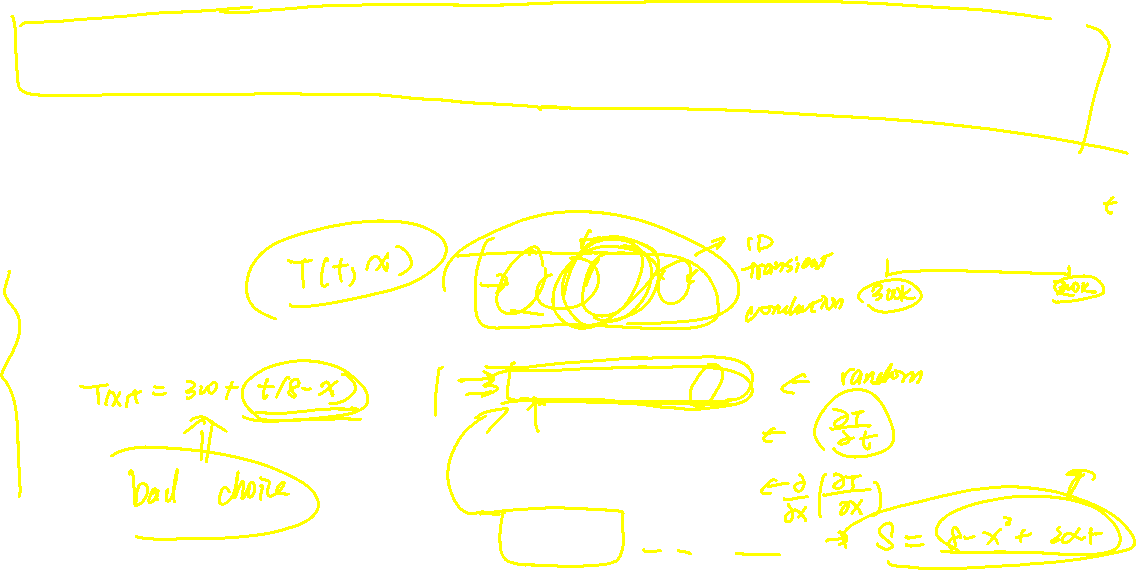 t
T(t, x)
1D
transient
conduction
300K
300K
T(x,t = 300 + (t/8 - x)
bad choice
← random
← ∂T/∂t
← ∂/∂x (∂T/∂x)
→ S = 8 - x² + 2αt